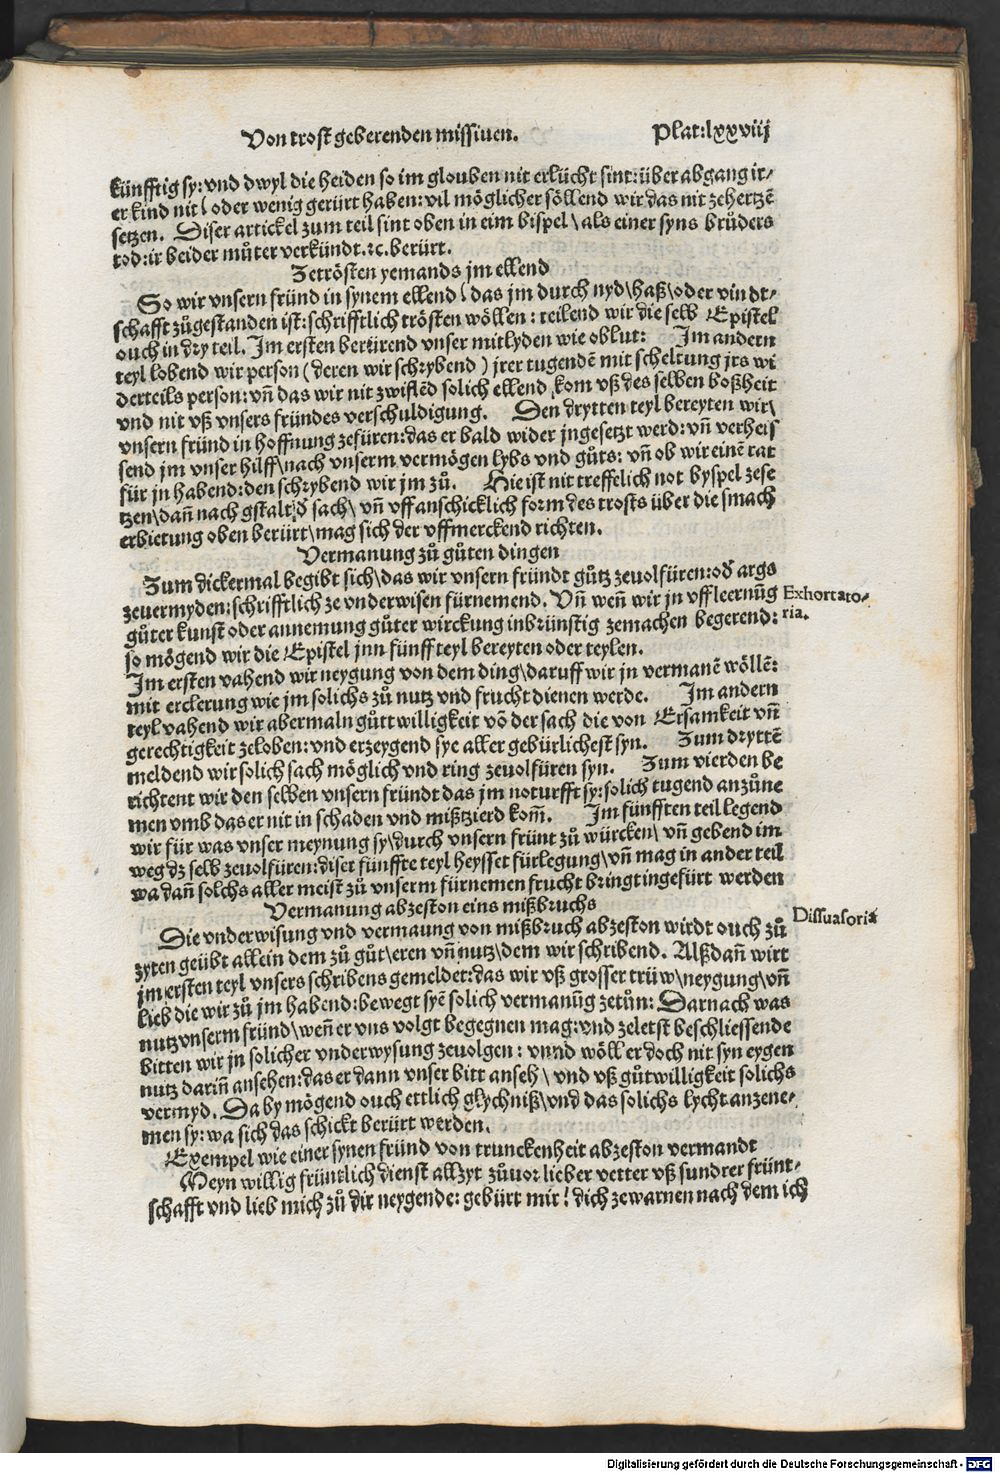 Von trost geberenden missiuen. Plat:lxxviij
künfftig sy: vnd dwyl die heiden so im glouben nit erlücht sint: über abgang ir-
er kind nit \ oder wenig gerürt haben: vil möglicher söllend wir das nit zehertzē
setzen. Diser artickel zum teil sint oben in eim bispel \ als einer syns brůders
tod: ir beider můter verkündt.ꝛc. berürt.
Zetrösten yemands jm ellend
So wir vnsern fründ in synem ellend \ das jm durch nyd \ haß \ oder vindt-
schafft zůgestanden ist: schrifftlich trösten wöllen: teilend wir die selb Epistel
ouch in dry teil. Im ersten berürend vnser mitlyden wie oblut: Im andern
teyl lobend wir person (deren wir schrybend) jrer tugendē mit scheltung jrs wi
derteils person: vn̄ das wir nit zwiflēd solich ellend kom vß des selben boßheit
vnd nit vß vnsers fründes verschuldigung. Den drytten teyl bereyten wir \
vnsern fründ in hoffnung zefüren: das er bald wider jngesetzt werd: vn̄ verheis
send jm vnser hilff \ nach vnserm vermögen lybs vnd gůts: vn̄ ob wir einē rat
für jn habend: den schrybend wir jm zů. Hie ist nit treffelich not byspel zese
tzen \ dan̄ nach gstalt d̄ sach \ vn̄ vffanschicklich form des trosts über die smach
erbietung oben berürt \ mag sich der vffmerckend richten.
Vermanung zů gůten dingen
Zum dickermal begibt sich \ das wir vnsern fründt gůtz zeuolfüren: od̄ args
zeuermyden: schrifftlich ze vnderwisen fürnemend. Vn̄ wen̄ wir jn vffleernūg
gůter kunst oder annemung gůter wirckung inbrünstig zemachen begerend:
so mögend wir die Epistel jnn fünff teyl bereyten oder teylen.
Exhortato-
ria.
Im ersten vahend wir neygung von dem ding \ daruff wir jn vermanē wöllē:
mit erclerung wie jm solichs zů nutz vnd frucht dienen werde. Im andern
teyl vahend wir abermaln gůttwilligkeit vō der sach die von Ersamkeit vn̄
gerechtigkeit zeloben: vnd erzeygend sye aller gebürlichest syn. Zum dryttē
meldend wir solich sach möglich vnd ring zeuolfüren syn. Zum vierden be
richtent wir den selben vnsern fründt das jm noturfft sy: solich tugend anzůne
men vmb das er nit in schaden vnd mißtzierd kom̄. Im fünfften teil legend
wir für was vnser meynung sy \ durch vnsern frünt zů würcken \ vn̄ gebend im
weg dz selb zeuolfüren: diser fünffte teyl heysset fürlegung \ vn̄ mag in ander teil
wa dan̄ solchs aller meist zů vnserm fürnemen frucht bringt ingefürt werden
Vermanung abzeston eins mißbruchs
Dissuasoria
Die vnderwisung vnd vermaung von mißbruch abzeston wirdt ouch zů
zyten geübt allein dem zů gůt \ eren vn̄ nutz \ dem wir schribend. Alßdan̄ wirt
jm ersten teyl vnsers schribens gemeldet: das wir vß grosser trüw \ neygung \ vn̄
lieb die wir zů jm habend: bewegt syē solich vermanūg zetůn: Darnach was
nutz vnserm fründ \ wen̄ er vns volgt begegnen mag: vnd zeletst beschliessende
bitten wir jn solicher vnderwysung zeuolgen: vnnd wöll er doch nit syn eygen
nutz darin̄ ansehen: das er dann vnser bitt anseh \ vnd vß gůtwilligkeit solichs
vermyd. Da by mögend ouch ettlich glychniß \ vnd das solichs lycht anzene-
men sy: wa sich das schickt berürt werden.
Exempel wie einer synen fründ von trunckenheit abzeston vermandt
Meyn willig früntlich dienst allzyt zůuor lieber vetter vß sundrer frünt-
schafft vnd lieb mich zů dir neygende: gebürt mir \ dich zewarnen nach dem ich
Digitalisierung gefördert durch die Deutsche Forschungsgemeinschaft - DFG